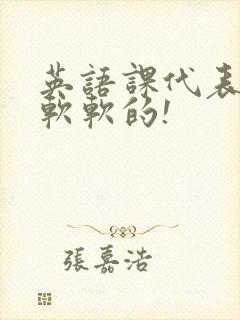 英語課代表
軟軟的!
張嘉浩